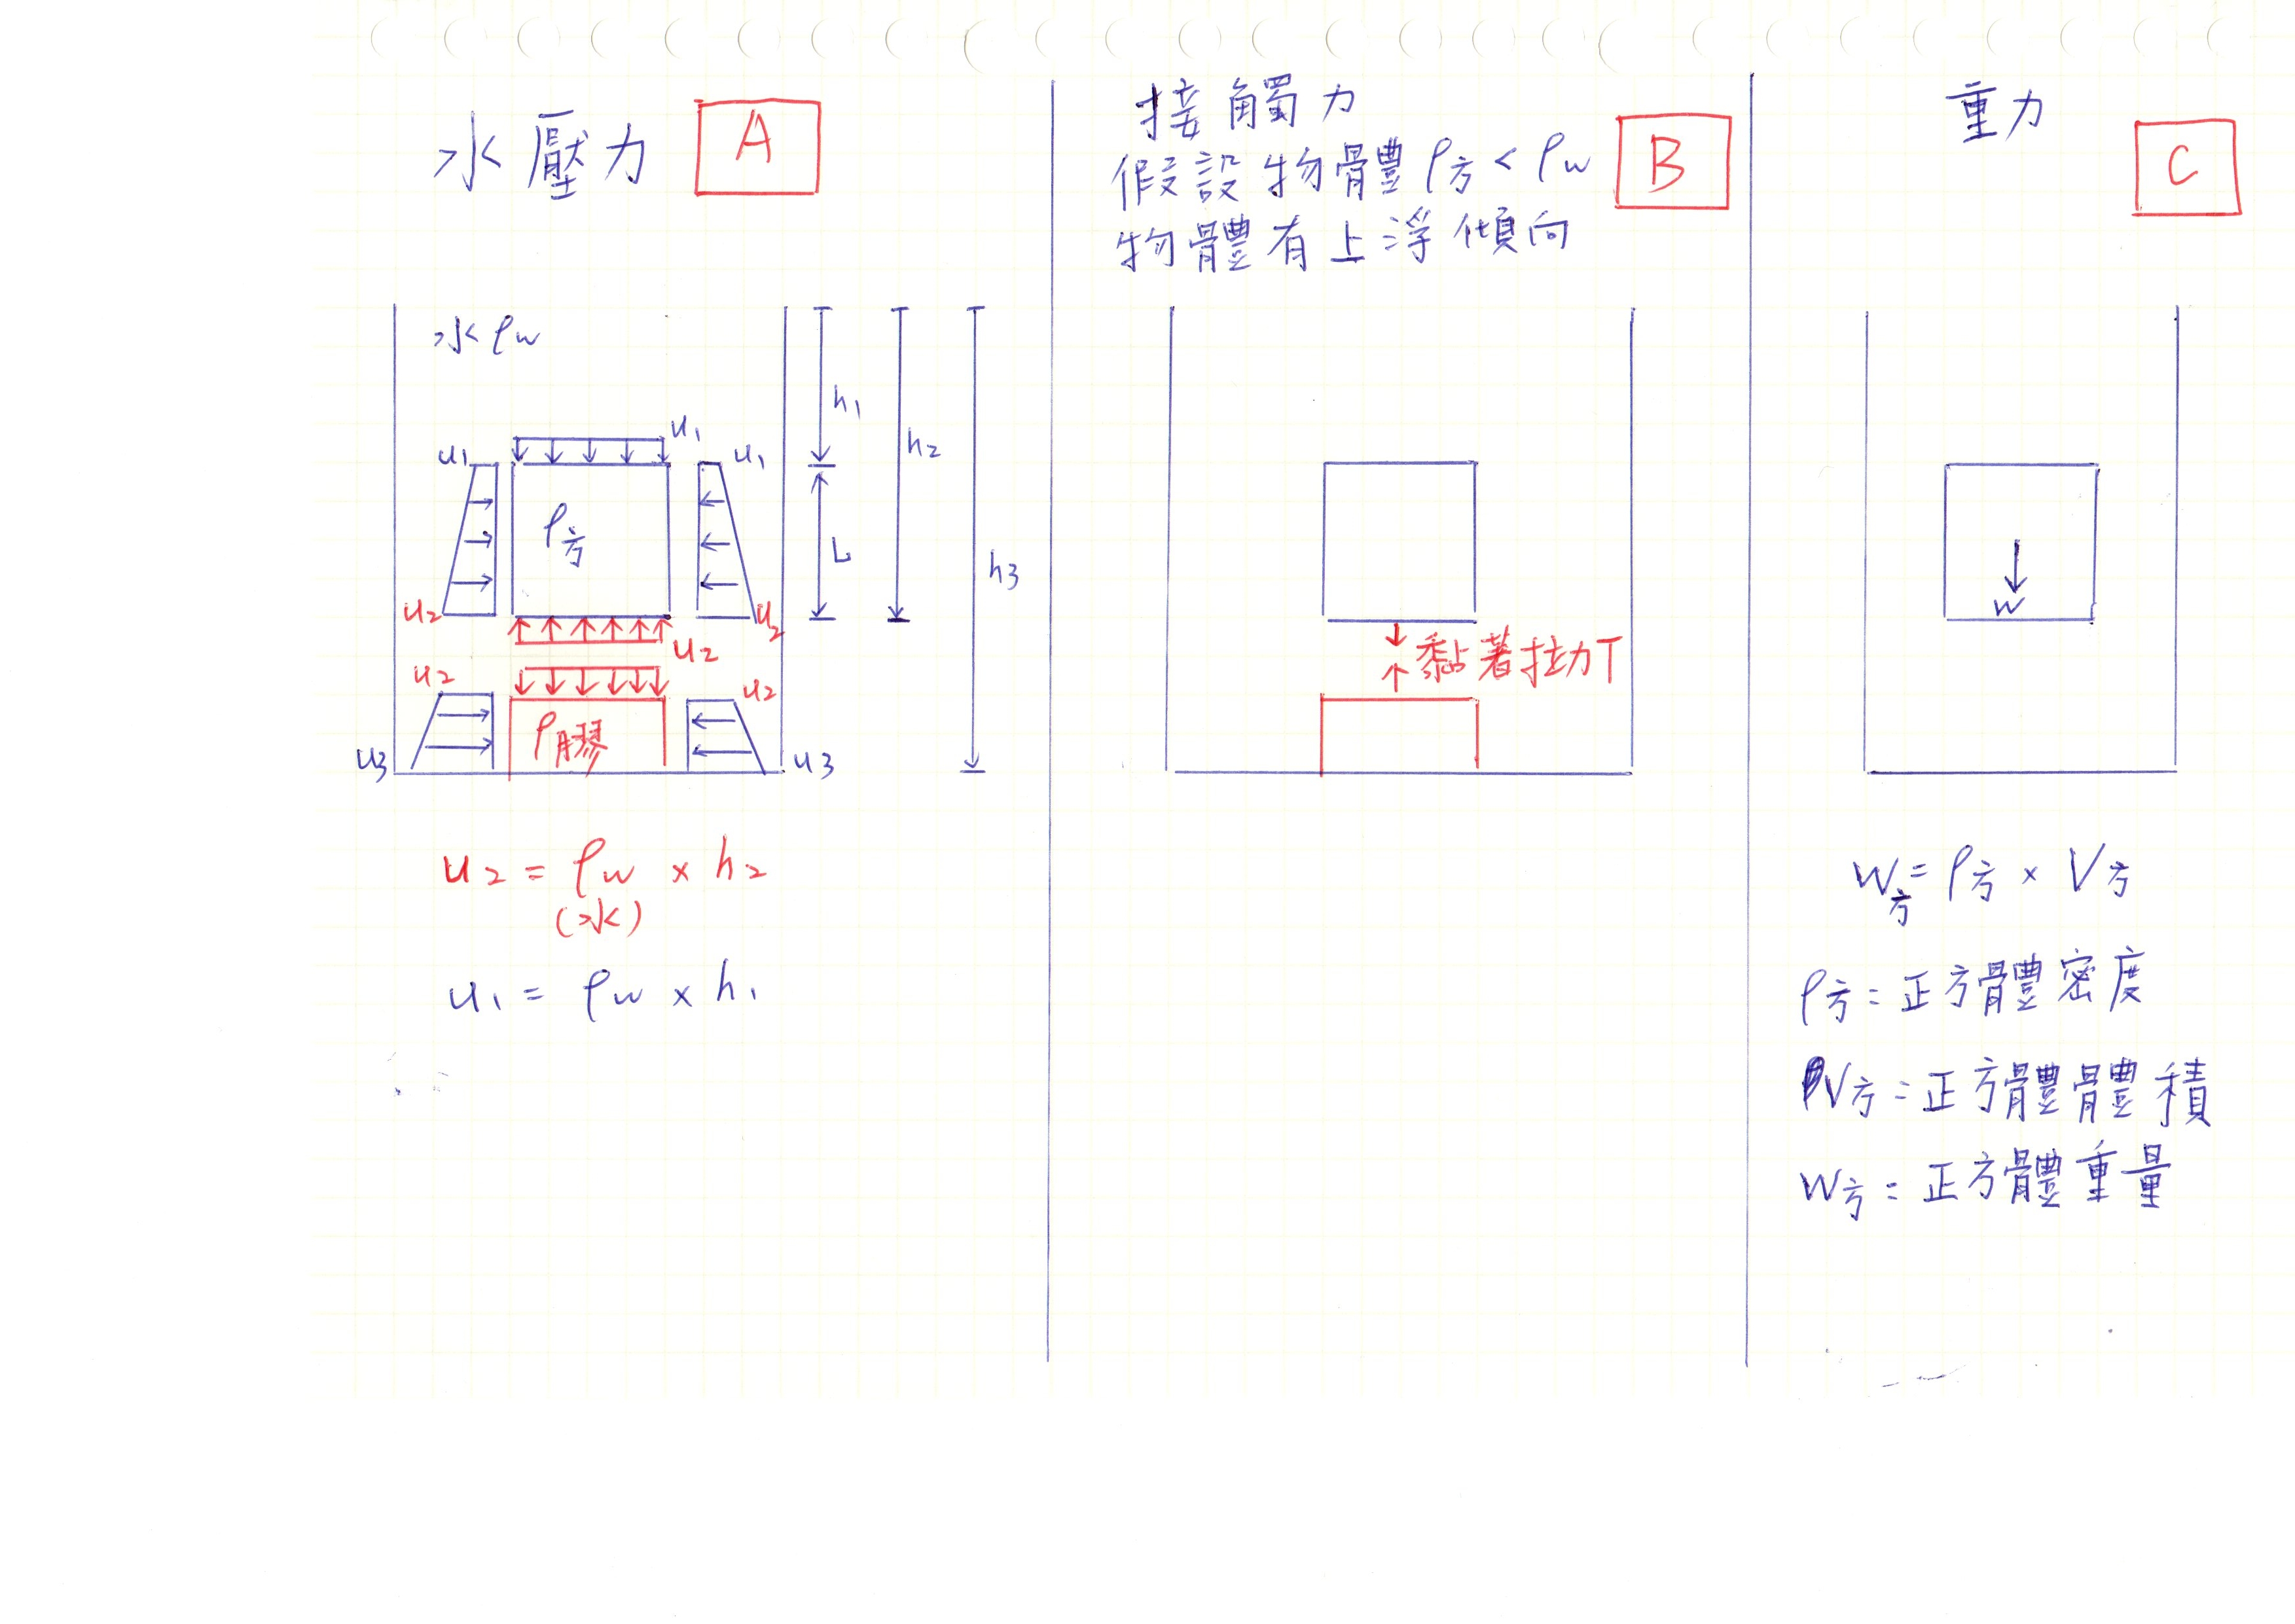 水壓力 A
水 ρw
u1
u1
u1
h1
h2
h3
ρ方
L
u2
u2
u2
u2
u2
ρ膠
u3
u3
u2 = ρw × h2
(水)
u1 = ρw × h1
接觸力
假設物體ρ方 < ρw
物體有上浮傾向
B
黏著拉力T
重力
C
W
W方 = ρ方 × V方
ρ方 = 正方體密度
V方 = 正方體體積
W方 = 正方體重量